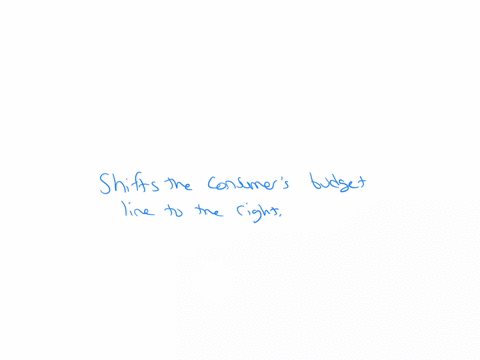 Shifts the consumer's budget
line to the right.